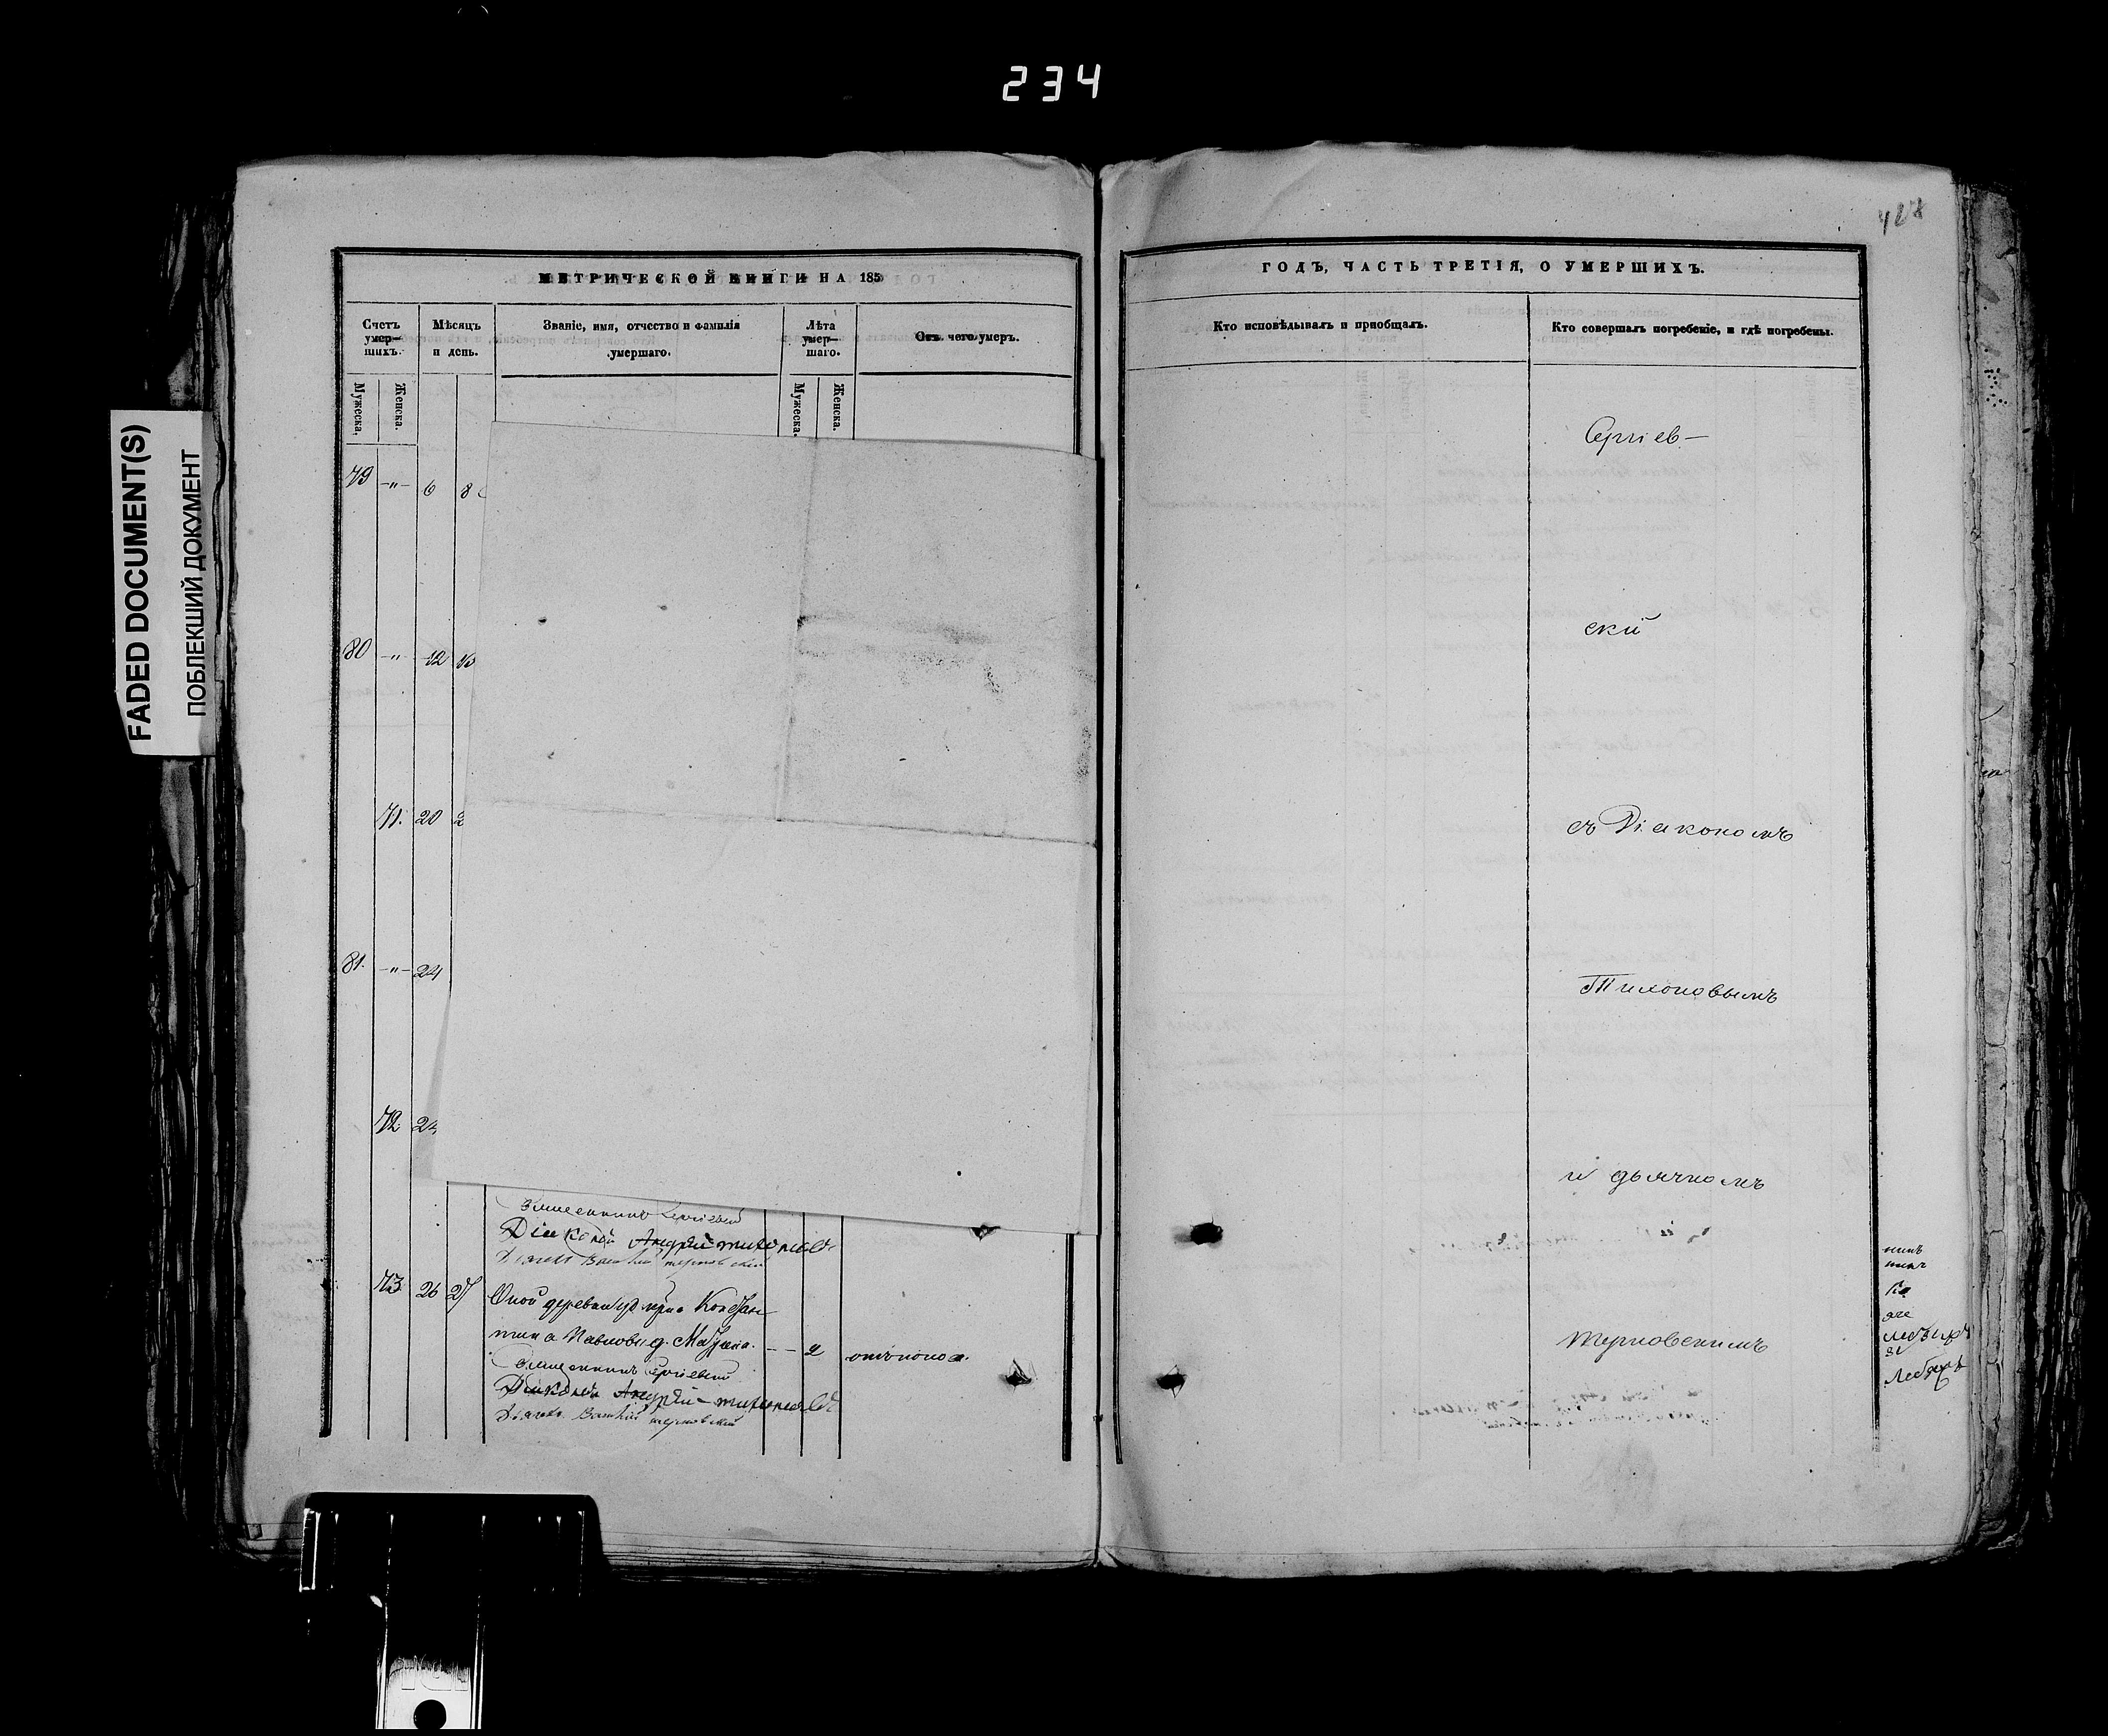 234
FADED DOCUMENT(S)
ПОБЛЕКШИЙ ДОКУМЕНТ
МЕТРИЧЕСКОЙ КНИГИ НА 185
Счетъ умер— шихъ.
Мѣсяцъ и день.
Званіе, имя, отчество и фамилія умершаго.
Лѣта умер— шаго.
Отъ чего умеръ.
Мужеска.
Женска.
Мужеска.
Женска.
79 -"- 6 8
80 -"- 12
71. 20 2
81. -"- 24
72. 24
Священникъ Сергіевскій
Діаконъ Андрей Тихоновъ
Дьячекъ Терновскій
73. 26 27 Оной деревни умерла Констан
тина Павлова д. Матрена. - - 2 отъ поноса.
Священникъ Сергіевскій
Діаконъ Андрей Тихоновъ
Дьячекъ Терновскій
428
ГОДЪ, ЧАСТЬ ТРЕТІЯ, О УМЕРШИХЪ.
Кто исповѣдывалъ и приобщалъ.
Кто совершалъ погребеніе, и гдѣ погребены.
Сергіев-
скій
съ Діакономъ
Тихоновымъ
и дьячкомъ
Терновскимъ